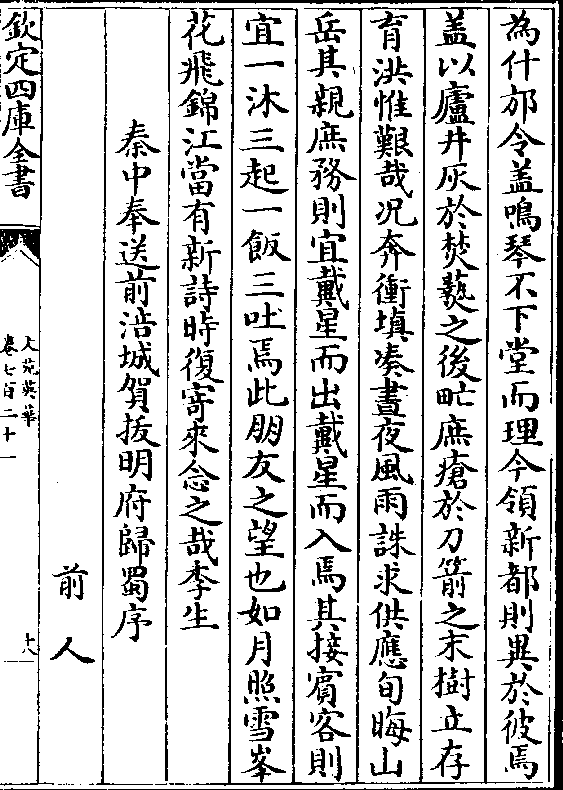 為什邡令盖鳴琴不下堂而理今領新都則異於彼焉
盖以廬井灰於焚爇之後甿庶瘡於刀箭之末樹立存
育洪惟艱哉况奔衝填凑晝夜風雨誅求供應旬晦山
岳其親庶務則宜戴星而出戴星而入焉其接賓客則
宜一沐三起一飯三吐焉此朋友之望也如月照雪峯
花飛錦江當有新詩時復寄來念之哉李生
秦中奉送前涪城賀拔明府歸蜀序
前人
欽定四庫全書
文苑英華
卷七百二十
十八